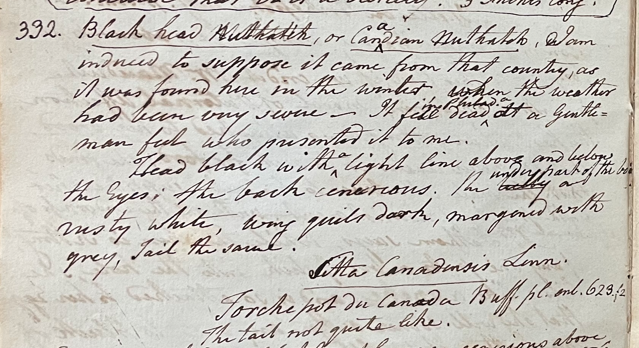 332. Black head Nuthatch, or Canadian Nuthatch, I am
induced to suppose it came from that country, as
it was found here in the winter, when the weather
had been very severe — It fell dead in Philad.a at a Gentle=
man feet who presented it to me.
Head black with a light line above and below
the Eyes; the back cenerious. the under part of the
rusty white, wing quils dark, margined with
grey, Tail the same.
Sitta Canadensis Linn.
Torchepot du Canada Buff. pl. enl. 623. f2
The tail not quite like.
above